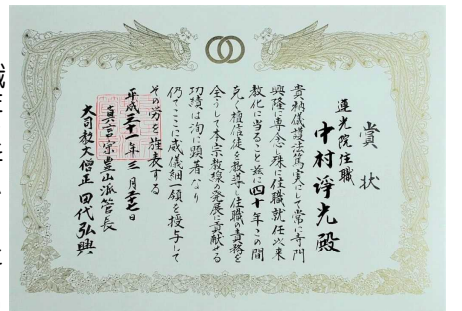 賞状
蓮光院住職
中村淨光殿
貴衲儀護法篤実にして常に寺門
興隆に専念し殊に住職就任以来
教化に当ること茲に四十年この間
克く檀信徒を教導し住職の責務を
全うして本宗教線の発展に貢献する
功績は洵に顕著なり
仍てここに威儀細一領を授与して
その労を旌表する
平成三十一年三月二十七日
真言宗豊山派管長
大司教大僧正田代弘興